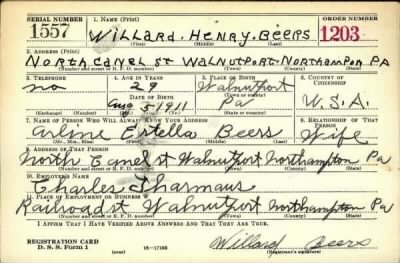 SERIAL NUMBER 1. NAME (Print) ORDER NUMBER
1557 WILLARD. HENRY. BEERS 1203
(First) (Middle) (Last)
2. ADDRESS (Print)
NORTH CANEL ST WALNUTPORT. NORTHAMPON PA
(Number and street or R. F. D. number) (Town) (County) (State)
3. TELEPHONE 4. AGE IN YEARS 5. PLACE OF BIRTH 6. COUNTRY OF CITIZENSHIP
no 29 Walnutport
DATE OF BIRTH (Town or county)
Aug 5-1911 Pa U.S.A.
(Mo.) (Day) (Yr.) (State or country)
7. NAME OF PERSON WHO WILL ALWAYS KNOW YOUR ADDRESS 8. RELATIONSHIP OF THAT PERSON
Arline Estella Beers Wife
(Mr., Mrs., Miss) (First) (Middle) (Last)
9. ADDRESS OF THAT PERSON
North Canel st Walnutport Northampton Pa
(Number and street or R. F. D. number) (Town) (County) (State)
10. EMPLOYER'S NAME
Charles
11. PLACE OF EMPLOYMENT OR BUSINESS
Railroad st Walnutport Northampton Pa
(Number and street or R. F. D. number) (Town) (County) (State)
I AFFIRM THAT I HAVE VERIFIED ABOVE ANSWERS AND THAT THEY ARE TRUE.
REGISTRATION CARD
D. S. S. Form 1 (over) 16-17105 Willard Beers
(Registrant's signature)